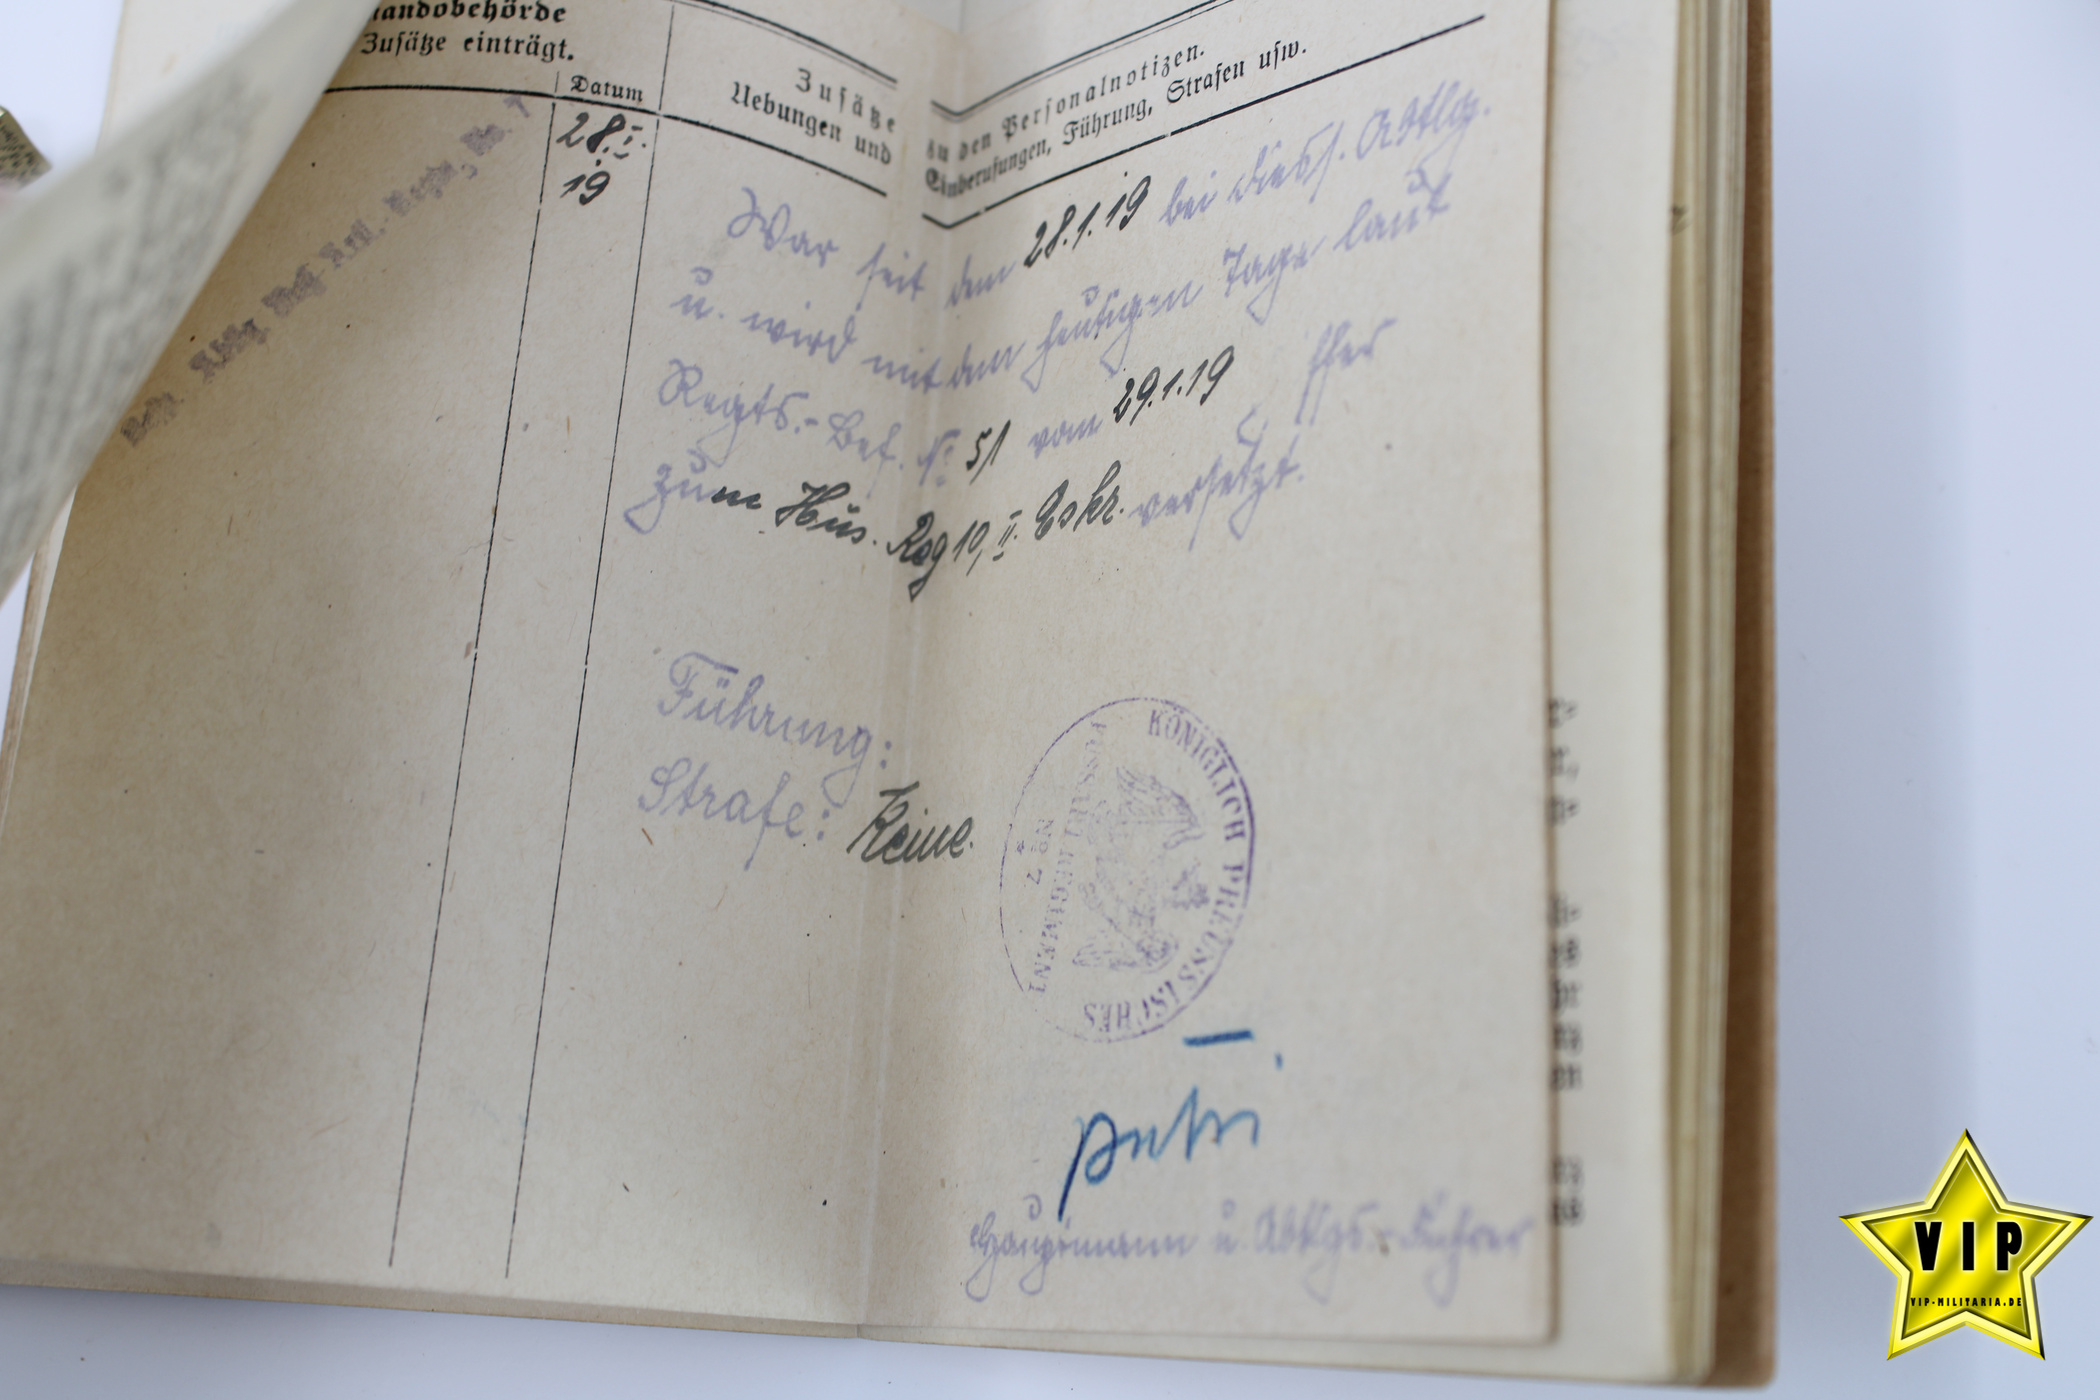 Zusätze einträgt.
Datum
Zusätze zu den Personalnotizen.
Uebungen und Einberufungen, Führung, Strafen usw.
28.I.
19
War seit dem 28.1.19 bei diess. Abtlg.
u. wird mit dem heutigen Tage laut
Regts.-Bef. No 51 vom 29.1.19
zum Hus. Reg 10, II. Eskr. versetzt.
Führung:
Strafe: Keine.
KÖNIGLICH PREUSSISCHES
REGIMENT
No 7
Hauptmann u. Abtlgs.-Führer
VIP
VIP-MILITARIA.DE